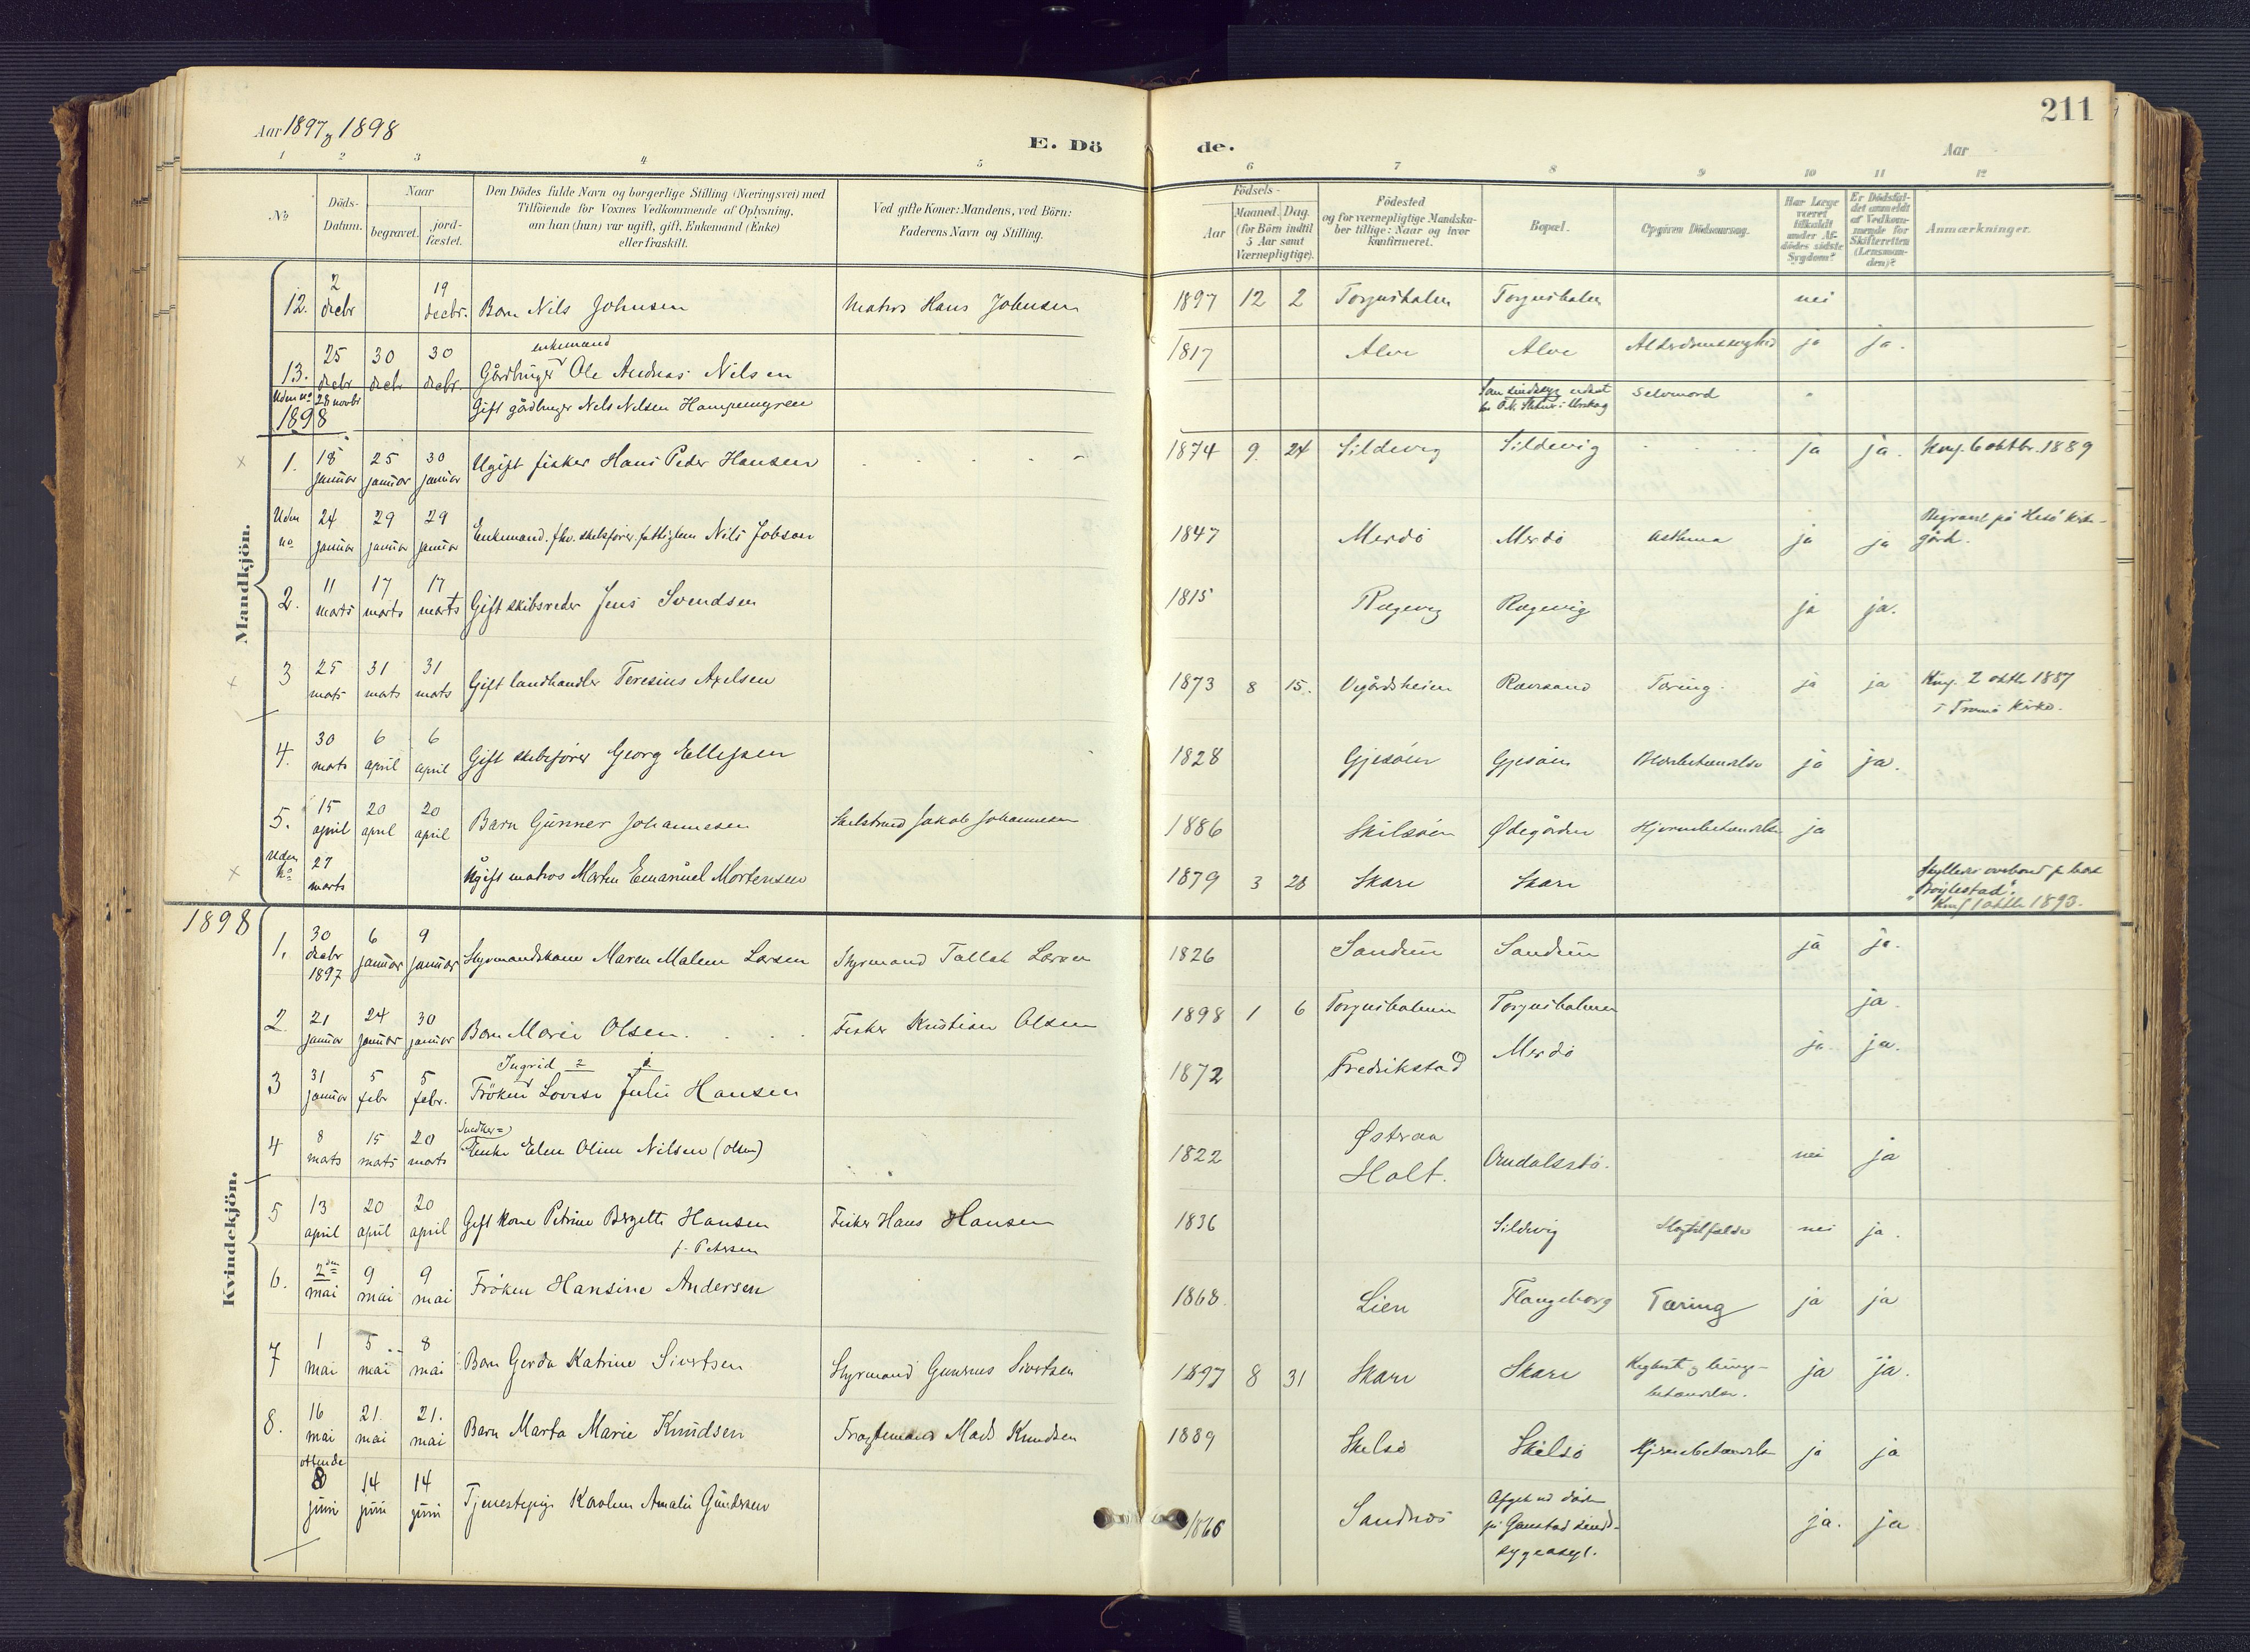 Aar 1897 og 1898
E. Dö de.
Aar
211
1 2 3 4 5 6 7 8 9 10 11 12
No
Döds-Datum.
Naar
begravet.
jord-fæstet.
Den Dödes fulde Navn og borgerlige Stilling (Næringsvei) med
Tilföiende for Voxnes Vedkommende af Oplysning,
om han (hun) var ugift, gift, Enkemand (Enke)
eller fraskilt.
Ved gifte Koner: Mandens, ved Börn:
Faderens Navn og Stilling.
Födsels-
Aar
Maaned. Dag.
(for Börn indtil
5 Aar samt
Værnepligtige).
Födested
og for værnepligtige Mandska-
ber tillige: Naar og hvor
konfirmeret.
Bopæl.
Opgiven Dödsaarsag.
Har Læge
været
tilkaldt
under Af-
dödes sidste
Sygdom?
Er Dödsfal-
det anmeldt
af Vedkom-
mende for
Skifteretten
(Lensman-
den)?
Anmærkninger.
Mandkjön.
12. 2 decbr 19 decbr. Barn Nils Johnsen Matros Hans Johnsen 1897 12 2 Torjusholm Torjusholm nei
enkemand
13. 25 decbr 30 decbr 30 decbr. Gårdbruger Ole Andreas Nilsen 1817 Alve Alve Alderdomssvaghed ja ja.
Uden no 28 novbr Gift gårdbruger Nils Nilsen Hampemyren Som sindssyg Selvmord
1898
1. 18 januar 25 januar 30 januar Ugift fisker Hans Peder Hansen 1874 9 24 Sildevig Sildevig ja ja. Konf. 6 oktbr. 1889
Uden no 24 januar 29 januar 29 januar Enkemand. fhv. skibsfører, fattiglem Nils Jobson 1847 Merdö Merdö Asthma ja ja Begravet på Hisö kirke-
gård.
2. 11 marts 17 marts 17 marts Gift skibsreder Jens Svendsen 1815 Rægevig Rægevig ja ja.
3 25 marts 31 marts 31 marts Gift landhandler Teresius Axelsen 1873 8 15. Vegårdsheien Revesand Tæring. ja ja Konf. 2 oktbr 1887
i Tromö kirke.
4. 30 marts 6 april 6 april Gift skibsfører Georg Ellefsen 1828 Gjesöien Gjesöien ja ja.
5. 15 april 20 april 20 april Barn Gunner Johannesen Jakob Johannesen 1886 Skilsöen Ødegården Hjernebetændelse ja
Uden No 27 marts Ugift matros Morten Emanuel Mortensen 1879 3 28 Skare Skare Skylledes overbord fra bark
"Bøylestad".
Konf 1 oktbr 1893.
1898
Kvindekjön.
1. 30 decbr 1897 6 januar 9 januar Styrmandskone Maren Malene Larsen Styrmand Tallak Larsen 1826 Sandum Sandum ja ja.
2. 21 januar 24 januar 30 januar Barn Marie Olsen. Fisker Kristian Olsen 1898 1 6 Torjusholmen Torjusholmen ja.
Ingrid
3 31 januar 5 febr 5 febr. Fröken Lovise Julie Hansen 1872 Fredrikstad Merdö ja ja.
Snedker=
4 8 marts 15 marts 20 marts Enke Elen Oline Nilsen (Olsen) 1822 Østeraa
Holt. Arndalsstö. nei ja
5 13 april 20 april 20 april Gift kone Petrine Bergette Hansen Fisker Hans Hansen 1836 Sildevig Slagtilfælde nei ja.
f. Petersen
6. 2den mai 9 mai 9 mai Fröken Hansine Andersen 1868. Lien Flangeborg Tæring ja ja
7 1 mai 5 mai 8 mai Barn Gerda Katrine Sivertsen Styrmand Gunerius Sivertsen 1897 8 31 Skare Skare Kighoste og lunge-
betændelse. ja ja.
8. 16 mai 21. mai 21. mai Barn Marta Marie Knudsen Fragtemand Mads Knudsen 1889 Skilsö Skilsö Hjernebetændelse ja ja
ottende
8 juni 14 juni 14 juni Tjenestepige Karoline Amalie Gundersen 1866 Sandnæs Afgik ved döden
på Gaustad sinds-
sygeasyl. ja. ja